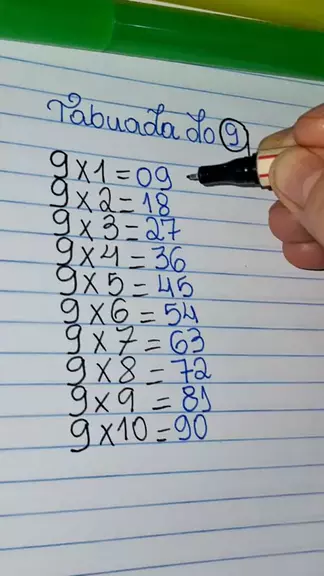 Tabuada do 9
9 x 1 = 09
9 x 2 = 18
9 x 3 = 27
9 x 4 = 36
9 x 5 = 45
9 x 6 = 54
9 x 7 = 63
9 x 8 = 72
9 x 9 = 81
9 x 10 = 90